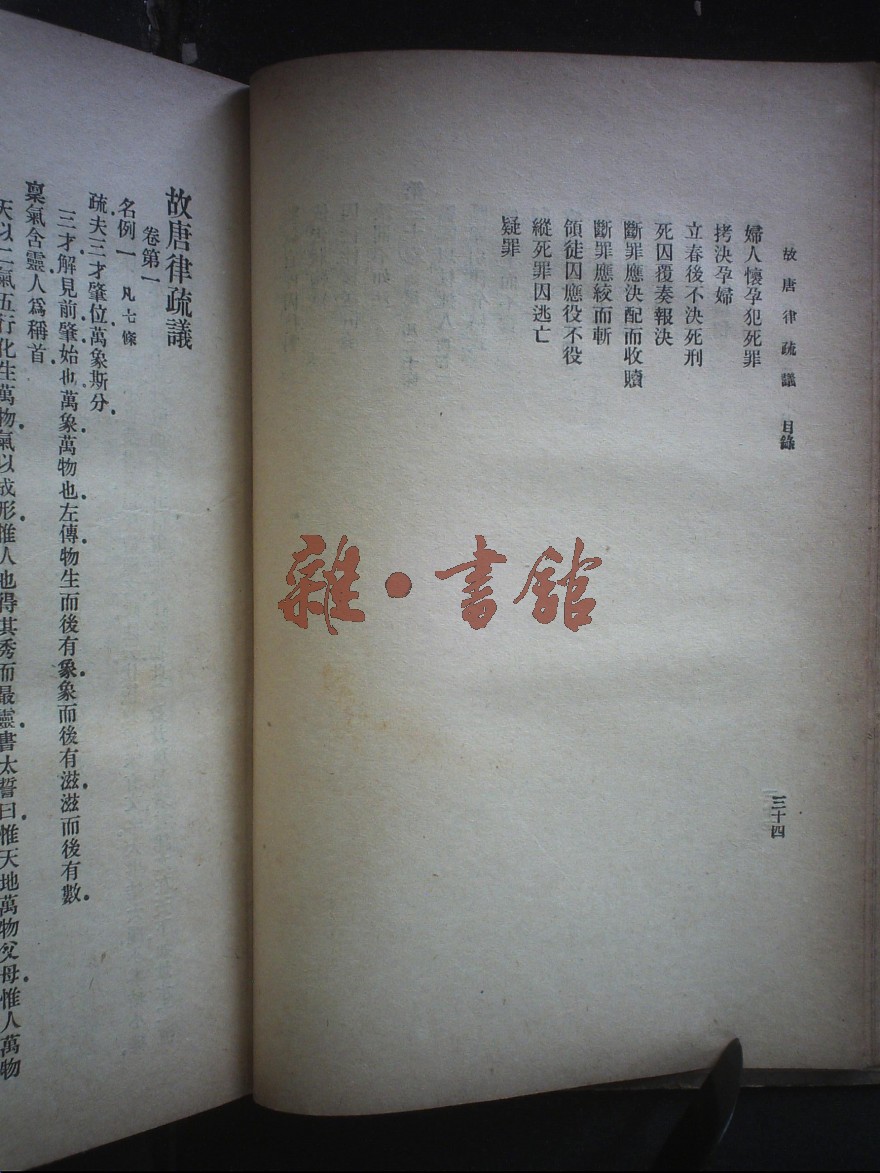 故唐律疏議 目錄
三十四
婦人懷孕犯死罪
拷決孕婦
立春後不決死刑
死囚覆奏報決
斷罪應決配而收贖
斷罪應絞而斬
領徒囚應役不役
縱死罪囚逃亡
疑罪
雜·書館
故唐律疏議
卷第一
名例一 凡七條
疏夫三才肇位萬象斯分。
三才解見前肇始也。萬象萬物也。左傳物生而後有象。象而後有滋。滋而後有數。
稟氣含靈。人爲稱首。
天以二氣五行化生萬物。氣以成形。惟人也得其秀而最靈。書太誓曰。惟天地萬物父母。惟人萬物